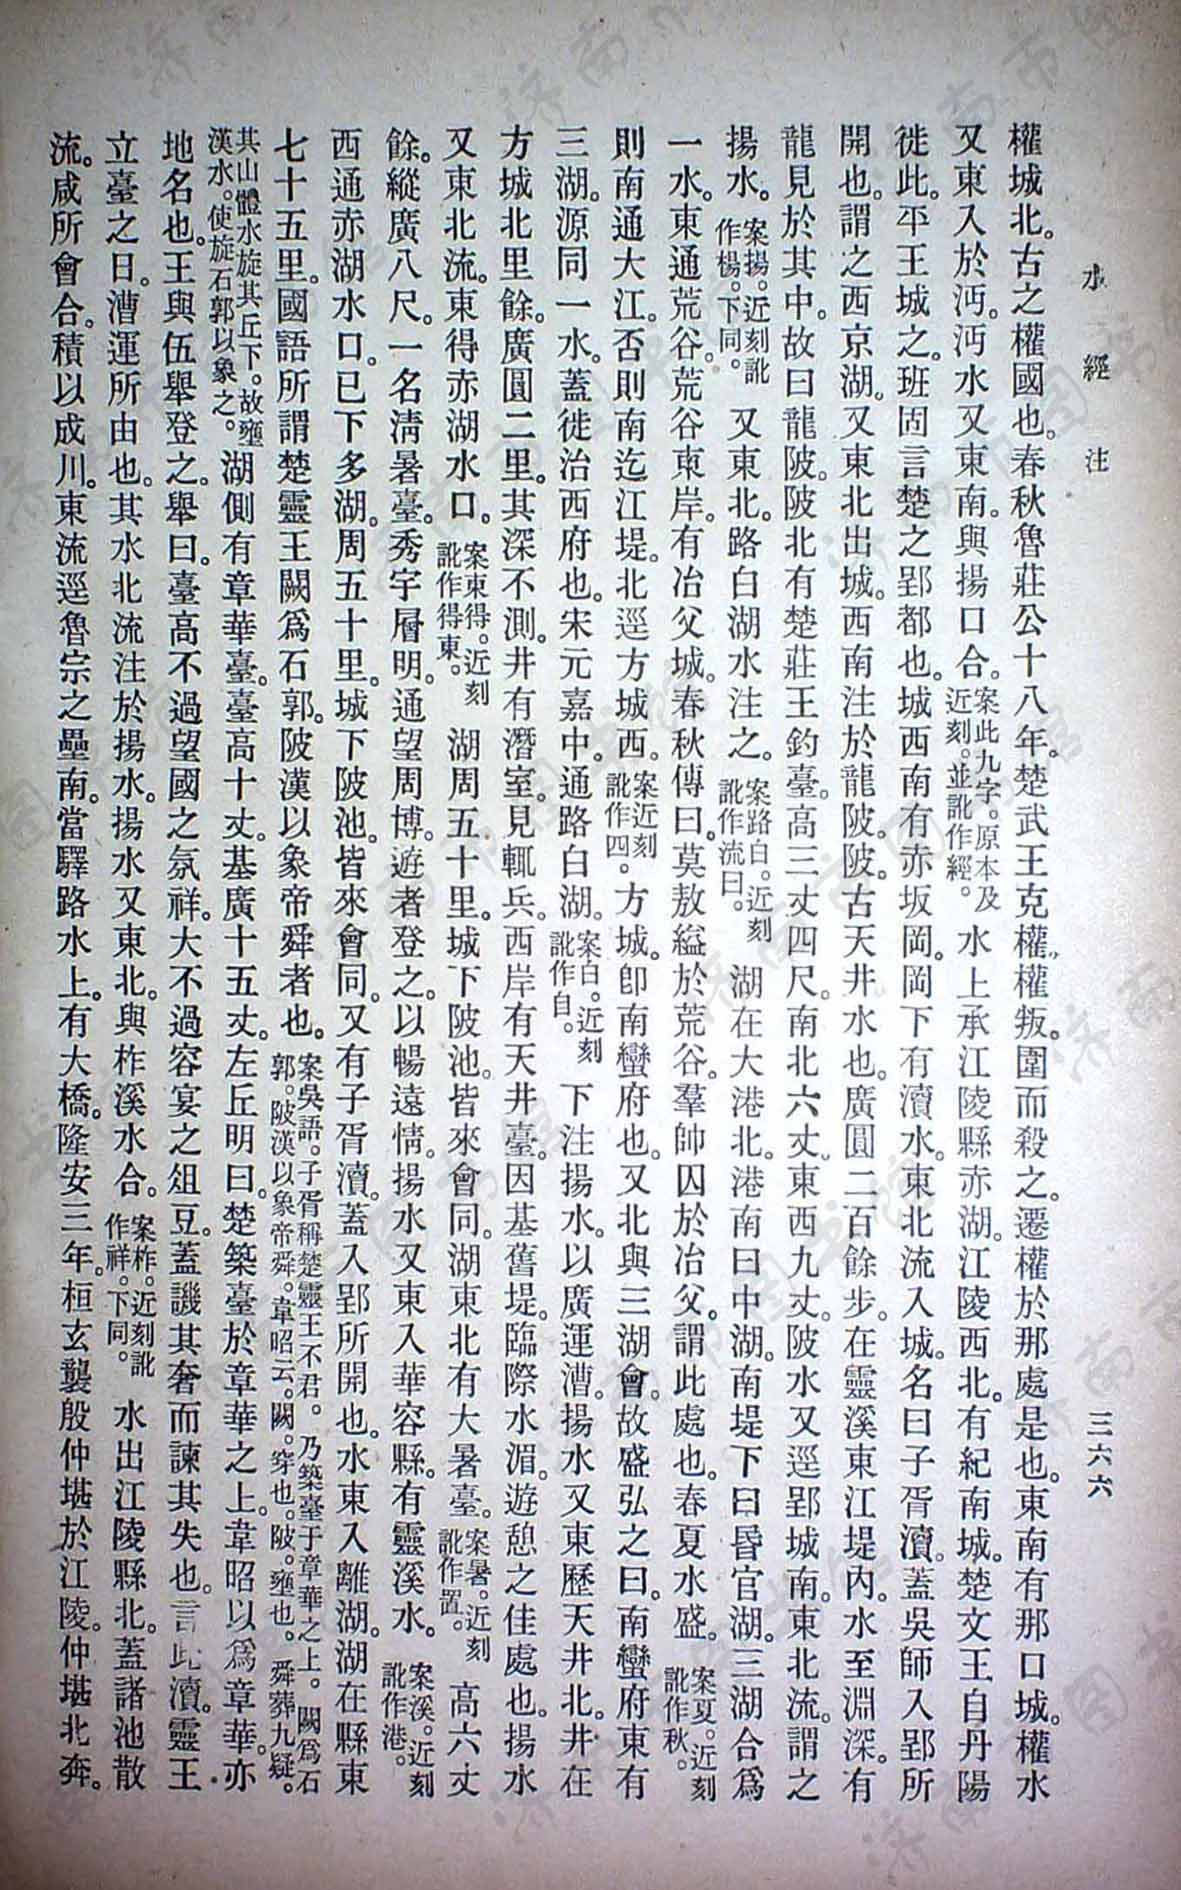 水經注
三六六
權城北。古之權國也。春秋魯莊公十八年。楚武王克權。權叛。圍而殺之。遷權於那處是也。東南有那口城。權水
又東入於沔。沔水又東南。與揚口合。案此九字。原本及近刻。並訛作經。水上承江陵縣赤湖。江陵西北。有紀南城。楚文王自丹陽
徙此。平王城之。班固言楚之郢都也。城西南有赤坂岡。岡下有瀆水。東北流入城。名曰子胥瀆。蓋吳師入郢所
開也。謂之西京湖。又東北出城。西南注於龍陂。陂。古天井水也。廣圓二百餘步。在靈溪東江堤內。水至淵深。有
龍見於其中。故曰龍陂。陂北有楚莊王釣臺。高三丈四尺。南北六丈。東西九丈。陂水又逕郢城南。東北流。謂之
揚水。案揚。近刻訛作楊。下同。又東北。路白湖水注之。案路白。近刻訛作流曰。湖在大港北。港南曰中湖。南堤下曰昬官湖。三湖合爲
一水。東通荒谷。荒谷東岸。有冶父城。春秋傳曰。莫敖縊於荒谷。羣帥囚於冶父。謂此處也。春夏水盛。案夏。近刻訛作秋。
則南通大江。否則南迄江堤。北逕方城西。案近刻訛作四。方城。卽南蠻府也。又北與三湖會。故盛弘之曰。南蠻府東有
三湖。源同一水。蓋徙治西府也。宋元嘉中。通路白湖。案白。近刻訛作自。下注揚水。以廣運漕。揚水又東歷天井北。井在
方城北里餘。廣圓二里。其深不測。井有潛室。見輒兵。西岸有天井臺。因基舊堤。臨際水湄。遊憩之佳處也。揚水
又東北流。東得赤湖水口。案東得。近刻訛作得東。湖周五十里。城下陂池。皆來會同。湖東北有大暑臺。案暑。近刻訛作置。高六丈
餘。縱廣八尺。一名清暑臺。秀宇層明。通望周博。遊者登之。以暢遠情。揚水又東入華容縣。有靈溪水。案溪。近刻訛作港。
西通赤湖水口。已下多湖。周五十里。城下陂池。皆來會同。又有子胥瀆。蓋入郢所開也。水東入離湖。湖在縣東
七十五里。國語所謂楚靈王闕爲石郭。陂漢以象帝舜者也。案吳語。子胥稱楚靈王不君。乃築臺于章華之上。闕爲石郭。陂漢以象帝舜。韋昭云。闕。穿也。陂。壅也。舜葬九疑。
其山體水旋其丘下。故壅漢水。使旋石郭以象之。湖側有章華臺。臺高十丈。基廣十五丈。左丘明曰。楚築臺於章華之上。韋昭以爲章華。亦
地名也。王與伍舉登之。舉曰。臺高不過望國之氛祥。大不過容宴之俎豆。蓋譏其奢而諫其失也。言此瀆。靈王
立臺之日。漕運所由也。其水北流注於揚水。揚水又東北。與柞溪水合。案柞。近刻訛作祥。下同。水出江陵縣北。蓋諸池散
流。咸所會合。積以成川。東流逕魯宗之壘南。當驛路水上。有大橋。隆安三年。桓玄襲殷仲堪於江陵。仲堪北奔。